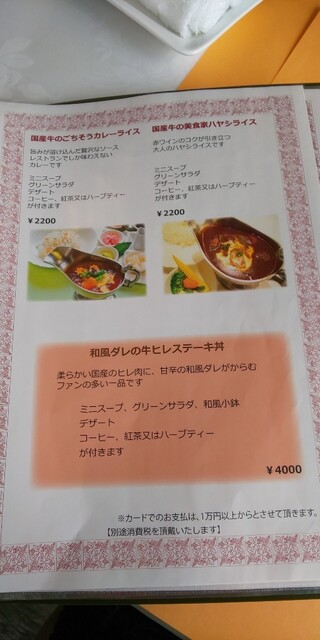 国産牛のごちそうカレーライス
旨みが溶け込んだ贅沢なソース
レストランでしか味わえない
カレーです
ミニスープ
グリーンサラダ
デザート
コーヒー、紅茶又はハーブティー
が付きます
¥2200
国産牛の美食家ハヤシライス
赤ワインのコクが引き立つ
大人のハヤシライスです
ミニスープ
グリーンサラダ
デザート
コーヒー、紅茶又はハーブティー
が付きます
¥2200
和風ダレの牛ヒレステーキ丼
柔らかい国産のヒレ肉に、甘辛の和風ダレがからむ
ファンの多い一品です
ミニスープ、グリーンサラダ、和風小鉢
デザート
コーヒー、紅茶又はハーブティー
が付きます
¥4000
※カードでのお支払は、1万円以上からとさせて頂きます。
【別途消費税を頂戴いたします】